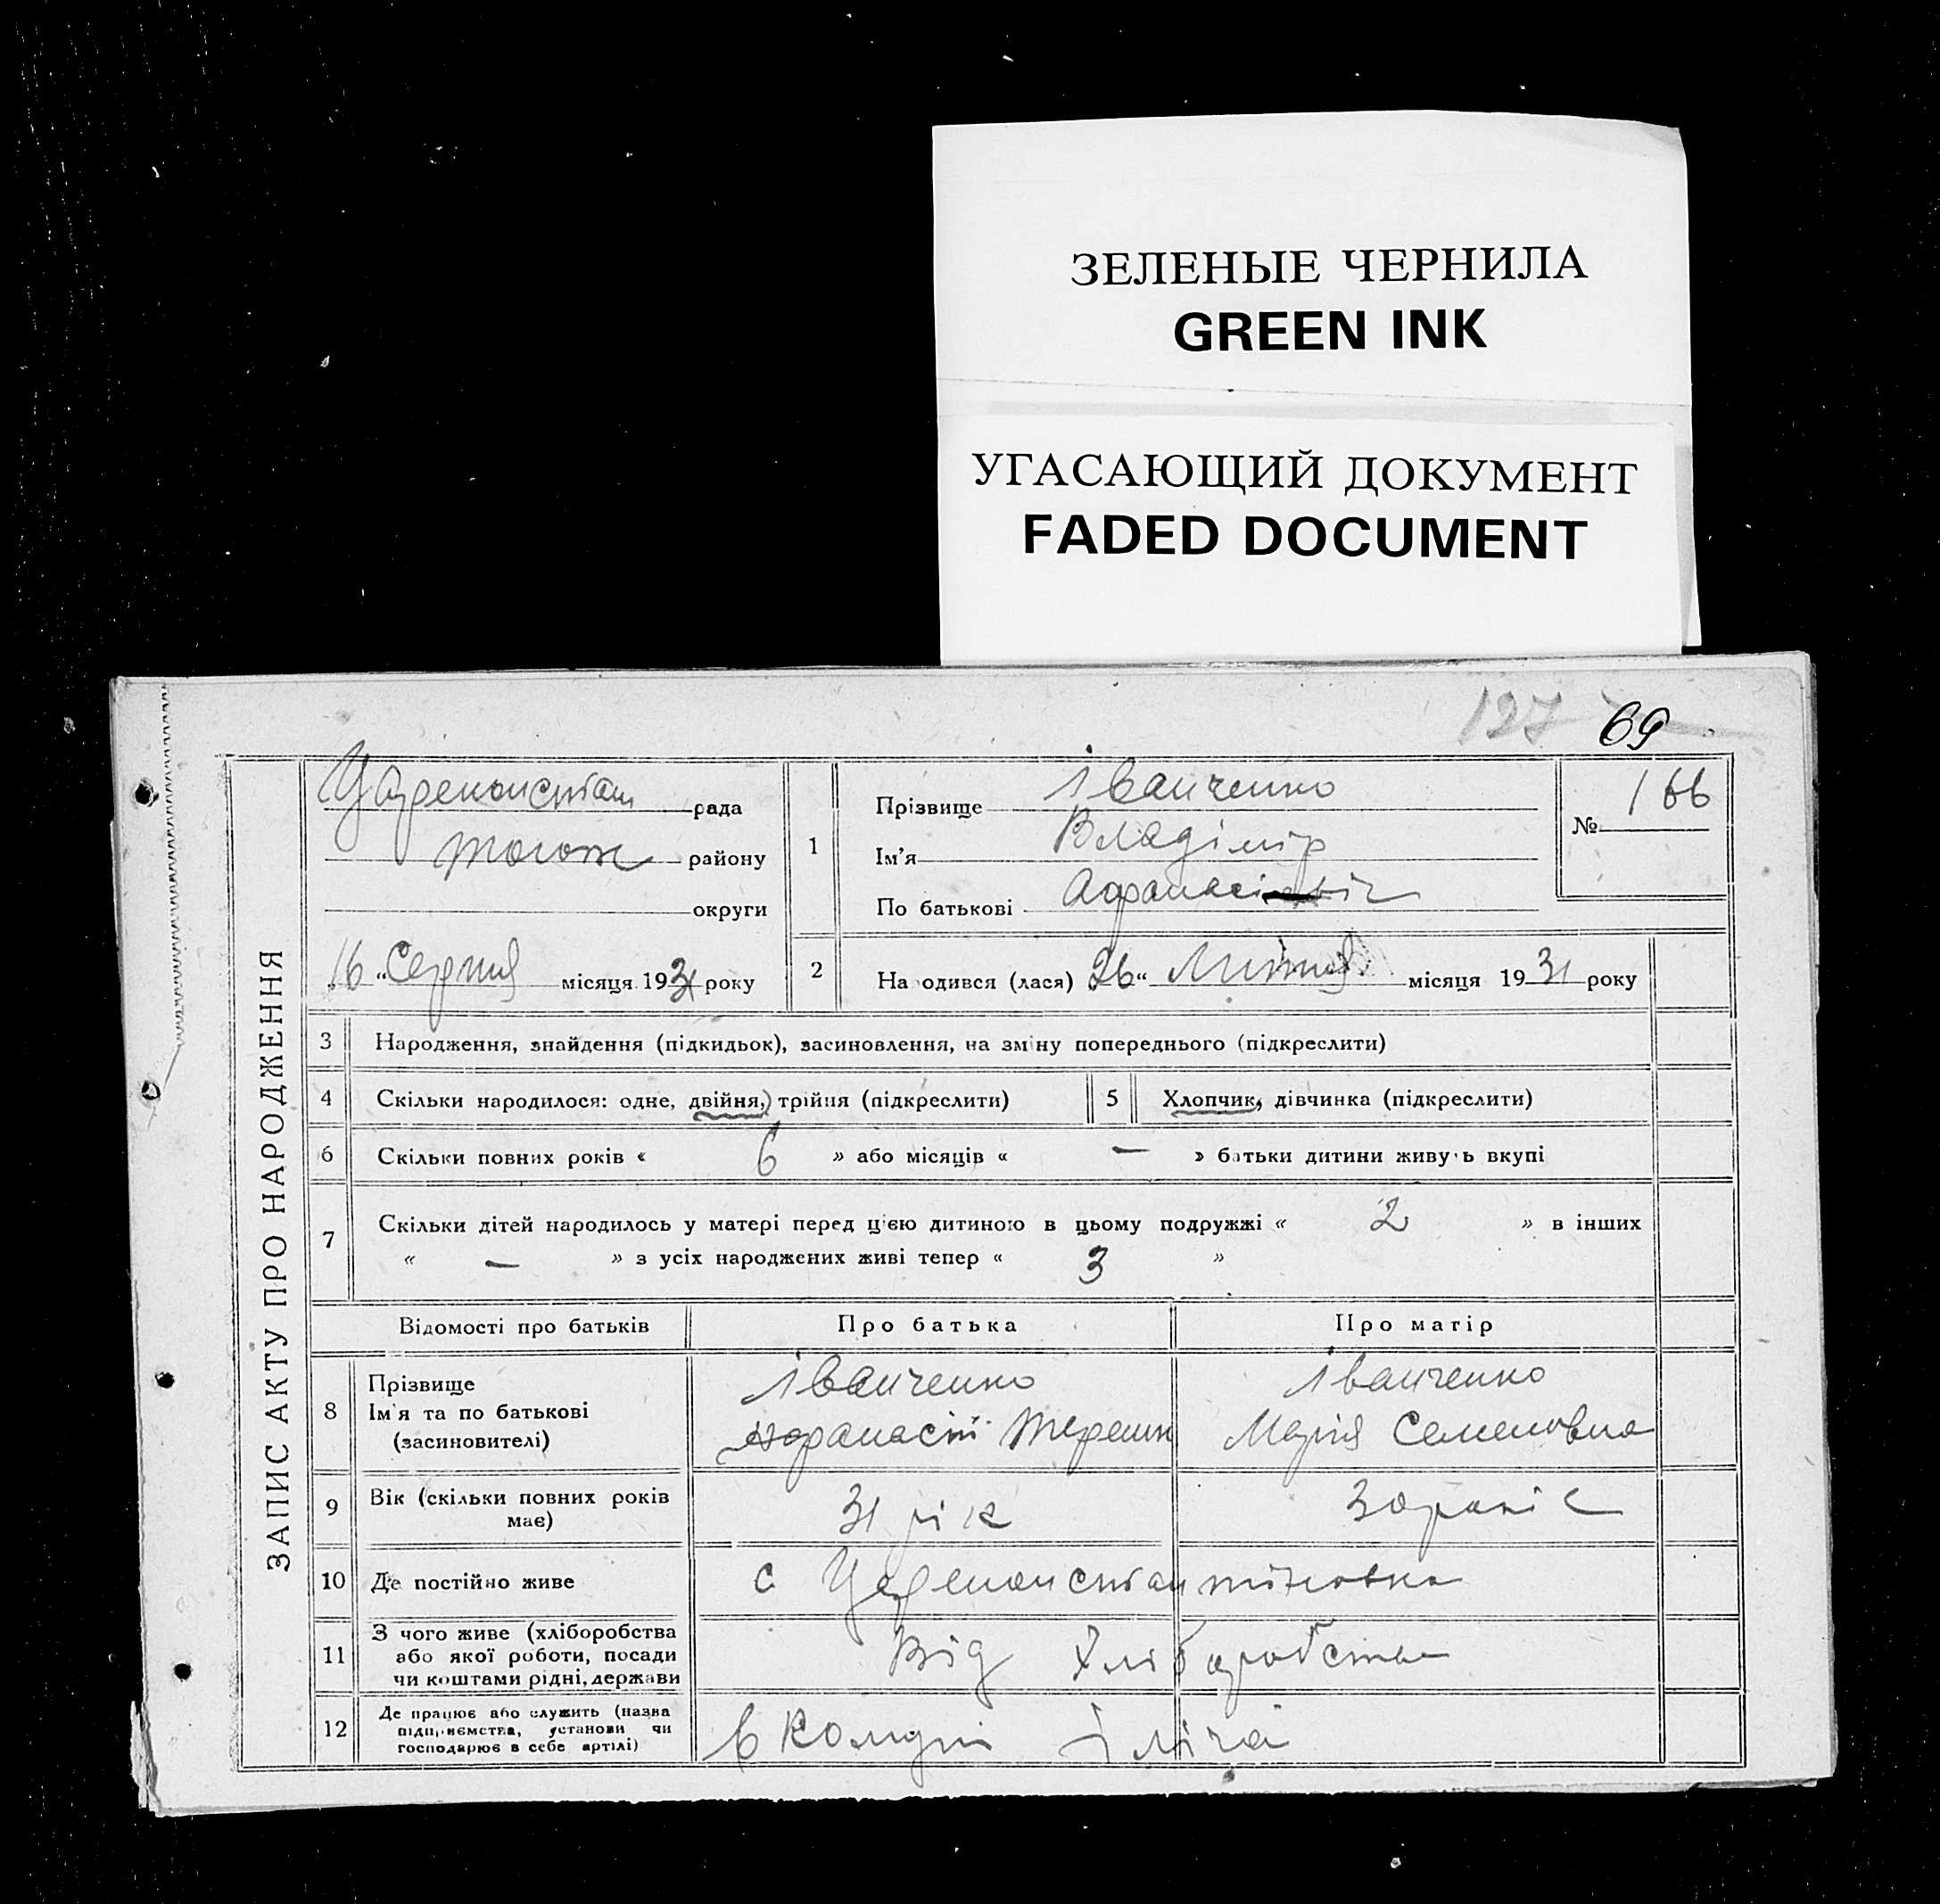 ЗЕЛЕНЫЕ ЧЕРНИЛА
GREEN INK
УГАСАЮЩИЙ ДОКУМЕНТ
FADED DOCUMENT
127 69
ЗАПИС АКТУ ПРО НАРОДЖЕННЯ
Цареконстан рада
району
округи
16 "Серпня місяця 1931 року
1
Прізвище Іванченко
Ім'я Владімір
По батькові Афанасі
№ 166
2 На одився (лася) 26 " Липня місяця 1931 року
3 Народження, знайдення (підкидьок), засиновлення, на зміну попереднього (підкреслити)
4 Скільки народилося: одне, двійня, трійня (підкреслити) 5 Хлопчик, дівчинка (підкреслити)
6 Скільки повних років « 6 » або місяців « — » батьки дитини живуть вкупі
7 Скільки дітей народилось у матері перед цією дитиною в цьому подружжі « 2 » в інших
« — » з усіх народжених живі тепер « 3 »
Відомості про батьків Про батька Про матір
8 Прізвище
Ім'я та по батькові
(засиновителі)
Іванченко
Афанасій Терешк
Іванченко
Марія Семеновна
9 Вік (скільки повних років
має)
31 рік
30
10 Де постійно живе с Цареконстантіновка
11 З чого живе (хліборобства
або якої роботи, посади
чи коштами рідні, держави
Від Хліборобства
12 Де працює або служить (назва
підприємства, установи чи
господарює в себе артілі)
в Комуні Ілліча